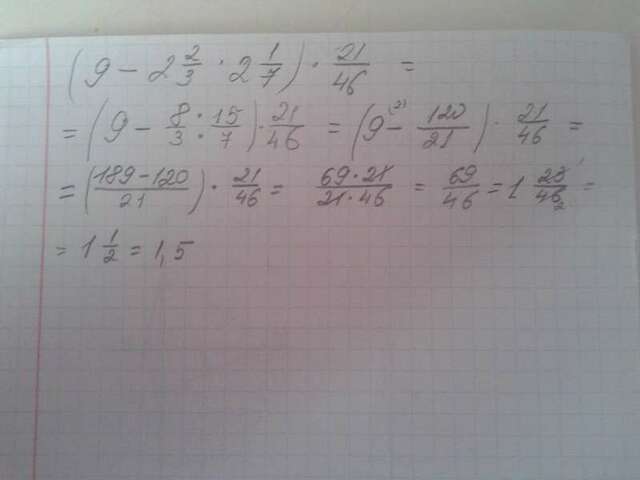 (9 - 2 2/3 · 2 1/7) · 21/46 =
= (9 - 8/3 · 15/7) · 21/46 = (9 - 120/21) · 21/46 =
= (189-120/21) · 21/46 = 69·21/21·46 = 69/46 = 1 23/46 =
= 1 1/2 = 1,5